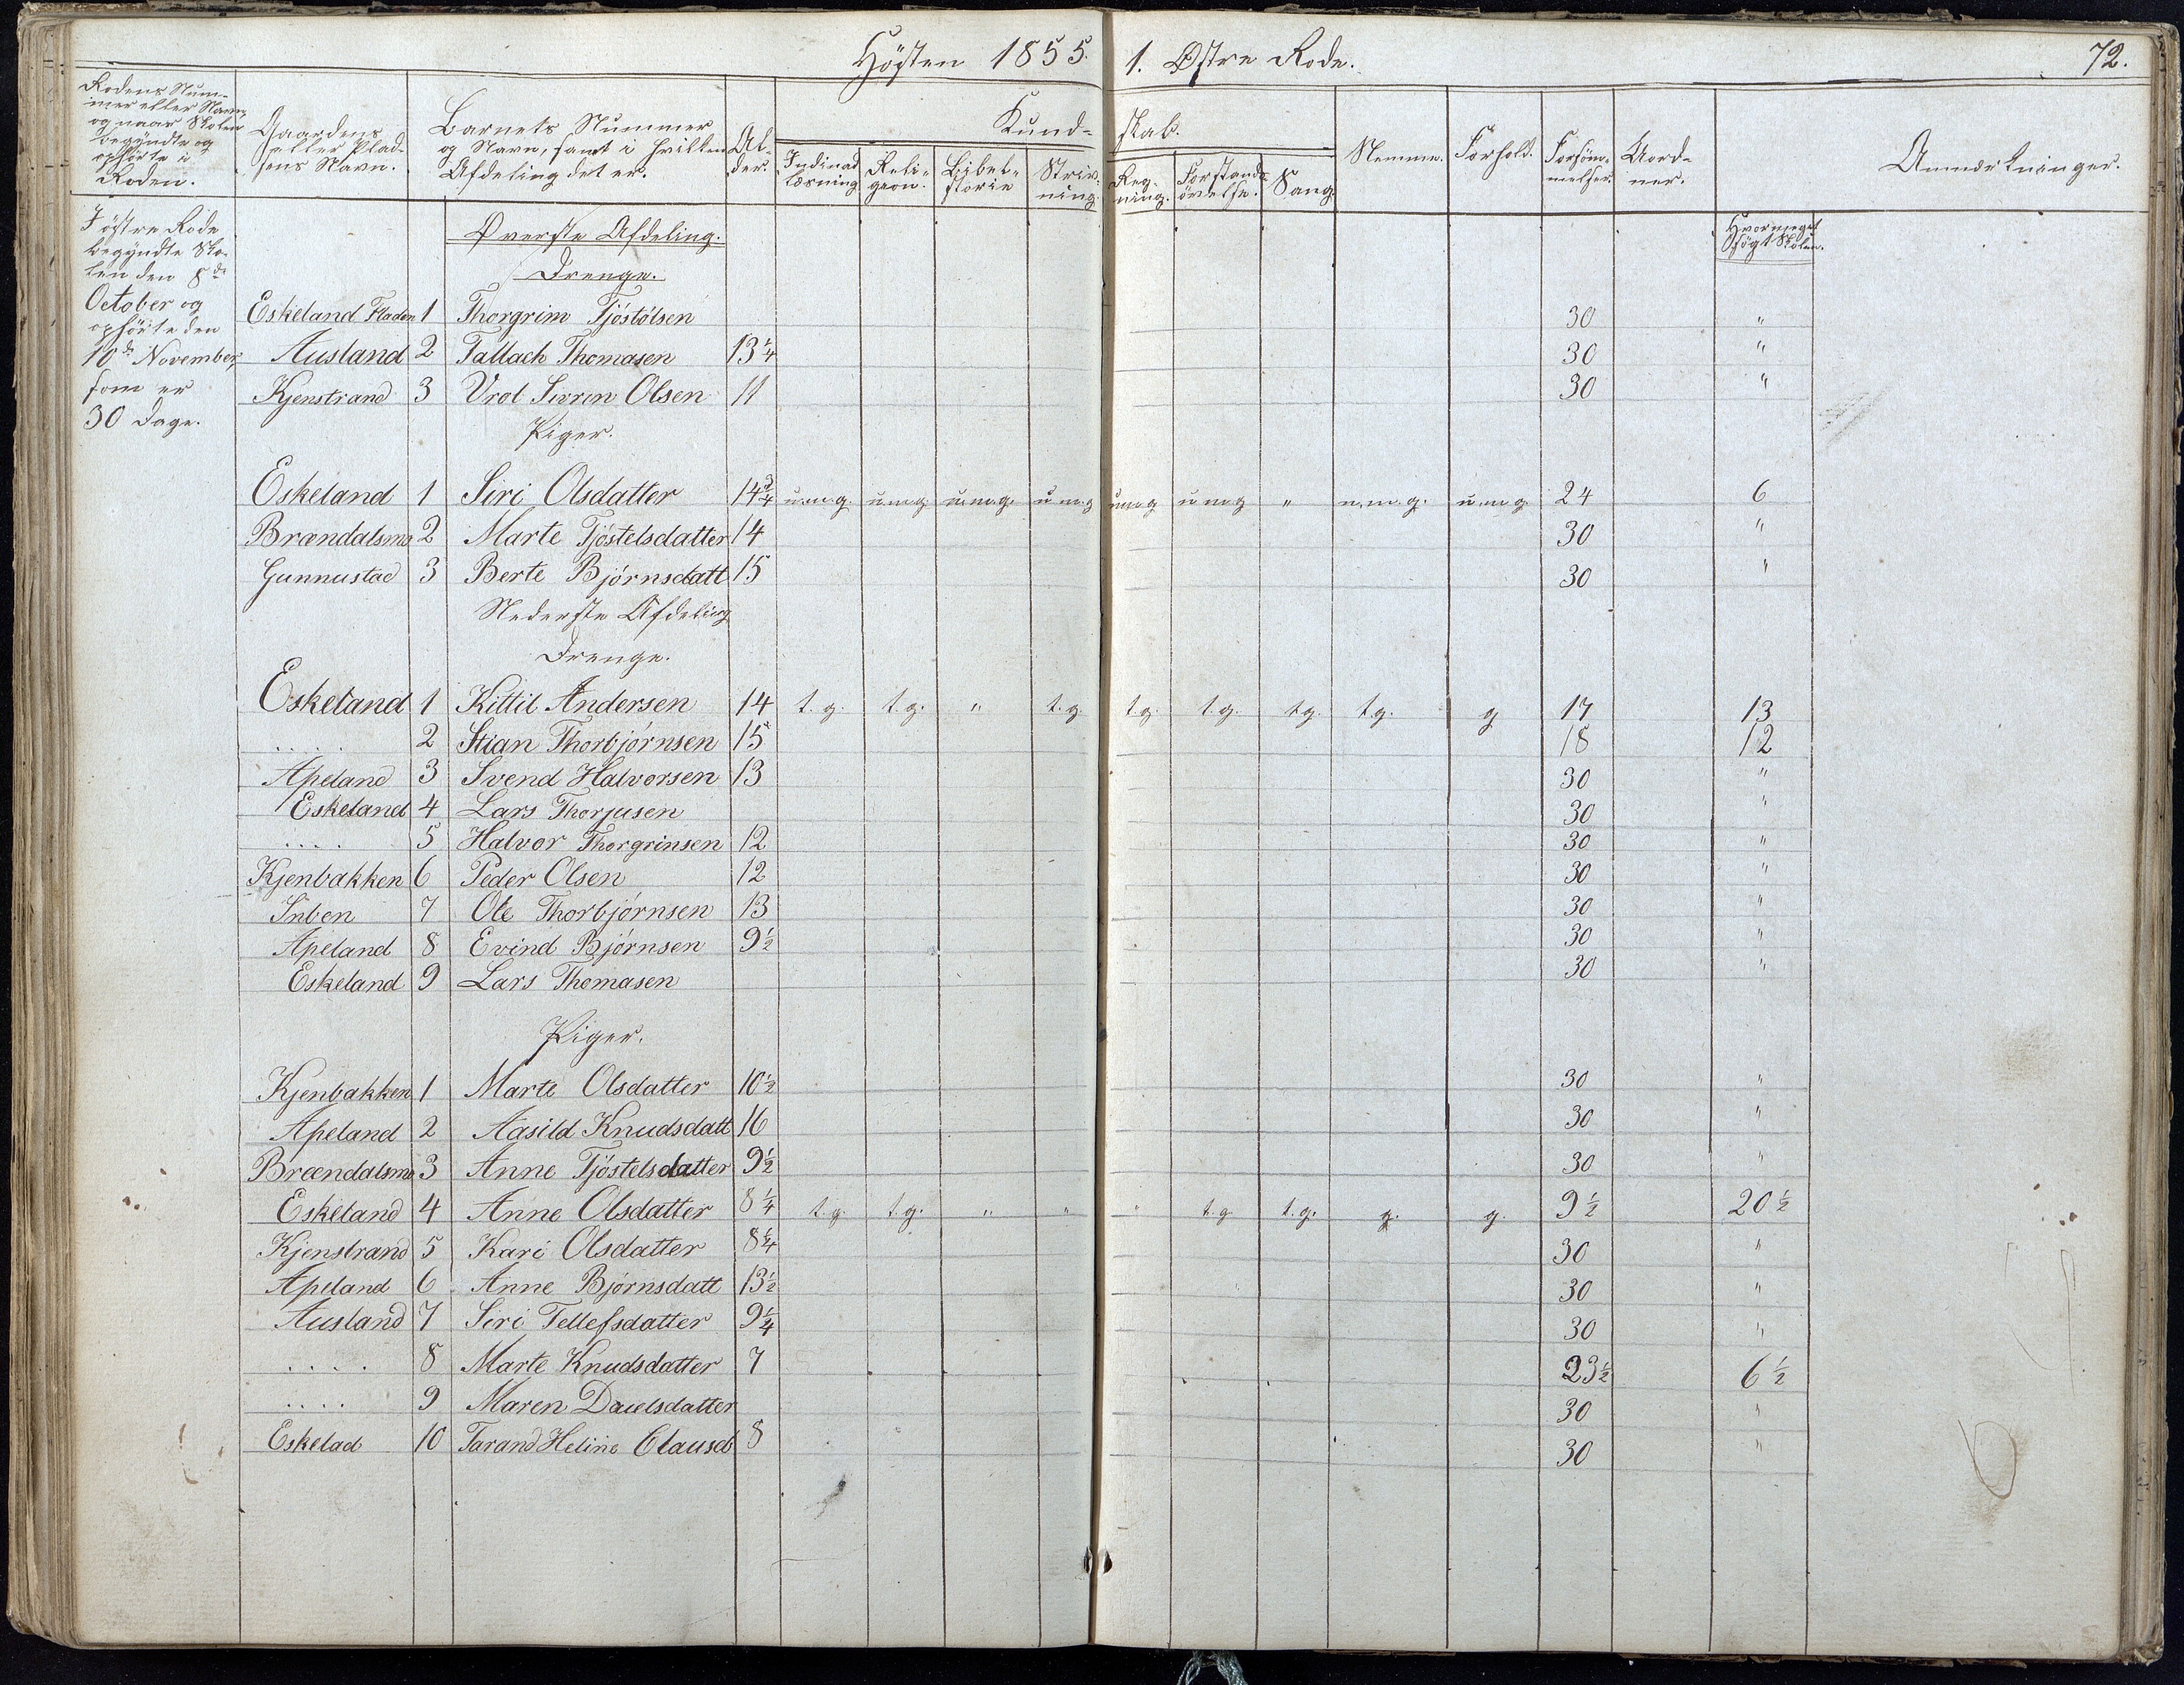 Høsten 1855. 1. Østre Rode. 72.
Rodens Num-
mer eller Navn,
og naar Skolen
begyndte og
ophørte i
Roden.
Gaardens
eller Plad-
sens Navn.
Barnets Nummer
og Navn, samt i hvilken
Afdeling det er.
Al-
der.
Kund- skab.
Indinad
læsning
Reli-
gion.
Bibel-
storie
Skriv-
ning.
Reg-
ning.
Forstands
øvelse.
Sang
Nemme. Forhold. Forsøm-
melser.
Uord-
ner.
Anmærkninger.
Hvormeget
søgt Skolen.
I østre Rode
begyndte Sko-
len den 8de
October og
ophørte den
10de November,
som er
30 Dage.
Øverste Afdeling.
Drenge.
Eskeland Fladen 1 Thorgrim Tjöstölsen 30 "
Ausland 2 Tallach Thomasen 13 1/4 30 "
Kjenstrand 3 Vrol Sivrin Olsen 11 30 "
Piger.
Eskeland 1 Siri Olsdatter 14 3/4 u.m.g. u.m.g. u.m.g. u.m.g u.m.g u.m.g " u.m.g. u.m.g 24 6
Brændalsmo 2 Marte Tjöstelsdatter 14 30 "
Gunnustad 3 Berte Bjørnsdatt 15 30 "
Nederste Afdeling
Drenge.
Eskeland 1 Kittil Andersen 14 t.g. t.g. " t.g. t.g. t.g. t.g. t.g. g 17 13
.... 2 Stian Thorbjørnsen 15 18 12
Apeland 3 Svend Halvorsen 13 30 "
Eskeland 4 Lars Thorjusen 30 "
.... 5 Halvor Thorgrinsen 12 30 "
Kjenbakken 6 Peder Olsen 12 30 "
Inben 7 Ole Thorbjørnsen 13 30 "
Apeland 8 Evind Bjørnsen 9 1/2 30 "
Eskeland 9 Lars Thomasen 30 "
Piger.
Kjenbakken 1 Marte Olsdatter 10 1/2 30 "
Apeland 2 Aasild Knudsdatt 16 30 "
Brændalsmo 3 Anne Tjöstelsdatter 9 1/2 30 "
Eskeland 4 Anne Olsdatter 8 1/4 t.g. t.g. " " " t.g. t.g. g. g. 9 1/2 20 1/2
Kjenstrand 5 Kari Olsdatter 8 1/4 30 "
Apeland 6 Anne Bjørnsdatt 13 1/2 30 "
Ausland 7 Siri Tellefsdatter 9 1/4 30 "
.... 8 Marte Knudsdatter 7 23 1/2 6 1/2
.... 9 Maren Danelsdatter 30 "
Eskelad 10 Tarand Heline Clausd 8 30 "